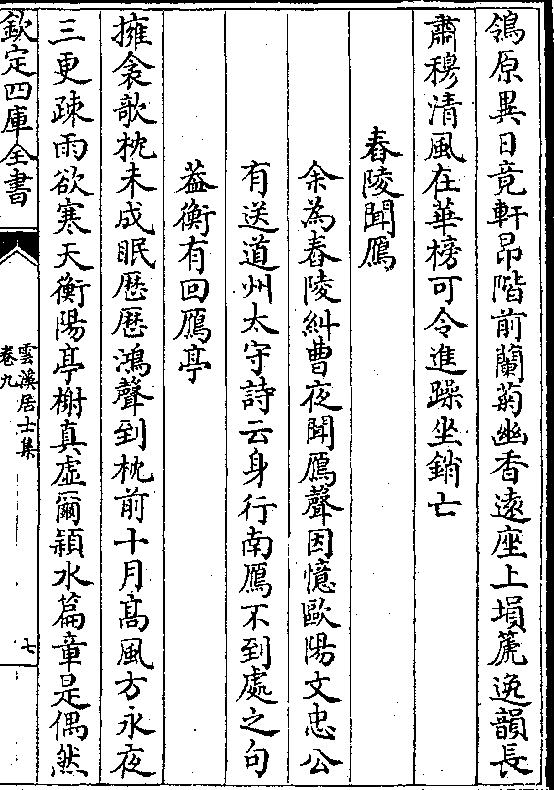 鴒原異日竟軒昂階前蘭菊幽香遠座上塤箎逸韻長
肅穆清風在華榜可令進躁坐銷亡
舂陵聞鴈
余為舂陵糾曹夜聞鴈聲因憶歐陽文忠公
有送道州太守詩云身行南鴈不到處之句
葢衡有回鴈亭
擁衾欹枕未成眠歴歴鴻聲到枕前十月髙風方永夜
三更疎雨欲寒天衡陽亭榭真虛爾潁水篇章是偶然
欽定四庫全書
雲溪居士集
卷九
七